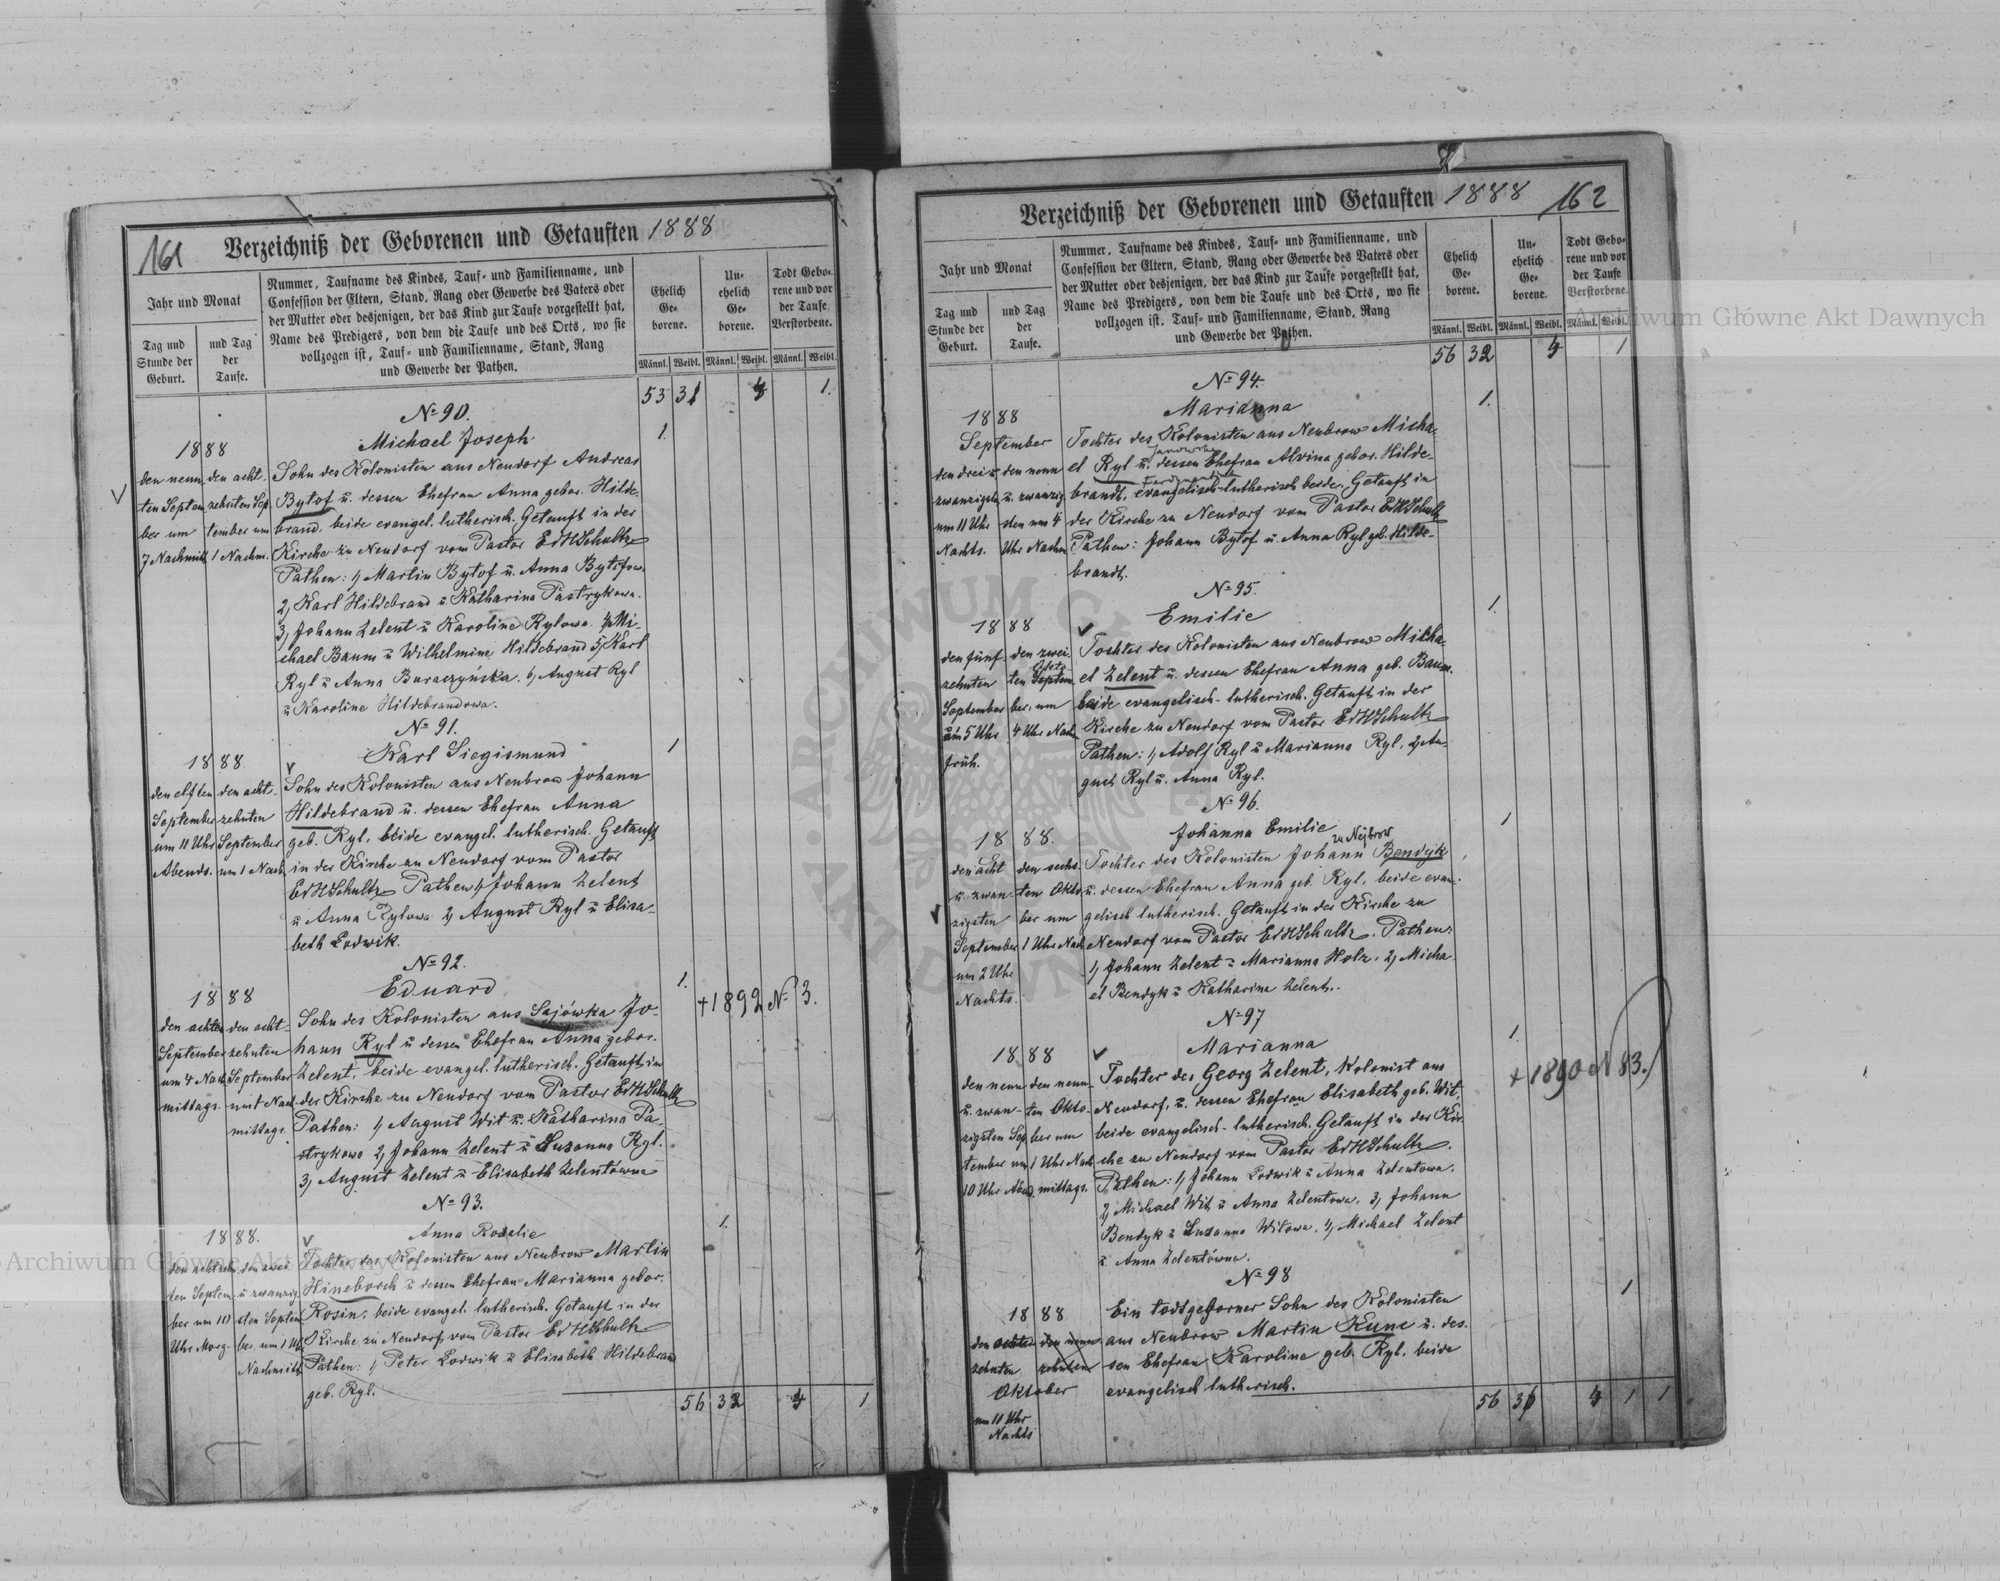 161 Verzeichniß der Geborenen und Getauften 1888
Jahr und Monat
Tag und Stunde der Geburt.
und Tag der Taufe.
Nummer, Taufname des Kindes, Tauf- und Familienname, und
Confession der Eltern, Stand, Rang oder Gewerbe des Vaters oder
der Mutter oder desjenigen, der das Kind zur Taufe vorgestellt hat,
Name des Predigers, von dem die Taufe und des Orts, wo sie
vollzogen ist, Tauf- und Familienname, Stand, Rang
und Gewerbe der Pathen.
Ehelich Ge-borene.
Un-ehelich Ge-borene.
Todt Gebo-rene und vor der Taufe Verstorbene.
Männl. Weibl. Männl. Weibl. Männl. Weibl.
53 31 4 1.
No 90.
Michael Joseph 1.
1888
den neun-ten Septem-ber um 7 Nachmitt.
den acht-zehnten Sep-tember um 1 Nachm.
Sohn des Kolonisten aus Neudorf Andreas
Bytof u. dessen Ehefrau Anna gebor. Hilde-
brand, beide evangel. lutherisch. Getauft in der
Kirche zu Neudorf vom Pastor EdHSchultz
Pathen: 1, Martin Bytof u. Anna Bytofow.
2, Karl Hildebrand u Katharina Pastrykowa.
3, Johann Zelent u Karoline Rylowa. 4, Mi-
chael Baum u Wilhelmine Hildebrand 5, Karl
Ryl u Anna Buraczyńska. 6, August Ryl
u Karoline Hildebrandowa.
No 91.
Karl Siegismund 1
1888
den elften September um 11 Uhr Abends.
den acht-zehnten September um 1 Nach.
Sohn des Kolonisten aus Neubrow Johann
Hildebrand u. dessen Ehefrau Anna
geb. Ryl, beide evangel. lutherisch. Getauft
in der Kirche zu Neudorf vom Pastor
EdHSchultz Pathen 1, Johann Zelent
u Anna Rylowa 2, August Ryl u Elisa-
beth Lodwik.
No 92.
Eduard 1.
+1892 No 3.
1888
den achten September um 4 Nach-mittags.
den acht-zehnten September um 1 Nach-mittags.
Sohn des Kolonisten aus Sajówka Jo-
hann Ryl u dessen Ehefrau Anna gebor.
Zelent, beide evangel. lutherisch. Getauft in
der Kirche zu Neudorf vom Pastor EdHSchultz
Pathen: 1, August Wit u. Katharina Pa-
strykowa 2, Johann Zelent u Susanna Ryl.
3, August Zelent u Elisabeth Zelentówna
No 93.
Anna Rosalie 1.
1888.
ten Septem-ber um 10 Uhr Morg-
den zwei u zwanzig-sten Septem-ber um 1 Uhr Nachmitt.
Tochter des Kolonisten aus Neubrow Martin
Hineborch u dessen Ehefrau Marianna gebor.
Rosin, beide evangel. lutherisch. Getauft in der
Kirche zu Neudorf vom Pastor EdHSchultz
Pathen: 1, Peter Lodwik u Elisabeth Hildebrand
geb. Ryl.
56 32 4 1
Verzeichniß der Geborenen und Getauften 1888 162
Jahr und Monat
Tag und Stunde der Geburt.
und Tag der Taufe.
Nummer, Taufname des Kindes, Tauf- und Familienname, und
Confession der Eltern, Stand, Rang oder Gewerbe des Vaters oder
der Mutter oder desjenigen, der das Kind zur Taufe vorgestellt hat,
Name des Predigers, von dem die Taufe und des Orts, wo sie
vollzogen ist, Tauf- und Familienname, Stand, Rang
und Gewerbe der Pathen.
Ehelich Ge-borene.
Un-ehelich Ge-borene.
Todt Gebo-rene und vor der Taufe Verstorbene.
Männl. Weibl. Männl. Weibl. Männl. Weibl.
56 32 4 1
No 94.
Marianna 1.
1888
September
den drei u. zwanzigsten um 11 Uhr Nachts.
den neun u. zwanzig-sten um 4 Uhr Nachm
Tochter des Kolonisten aus Neubrow Micha-
el Ryl u. dessen Ehefrau Alvina gebor. Hilde-
brandt, evangelisch-lutherisch beide. Getauft in
der Kirche zu Neudorf vom Pastor EdHSchultz
Pathen: Johann Bytof u. Anna Ryl geb. Hilde-
brandt.
No 95.
Emilie 1.
1888
den fünf-zehnten September um 5 Uhr früh.
den zwei-ten Septem-ber, um 4 Uhr Nach
Tochter des Kolonisten aus Neubrow Micha-
el Zelent u. dessen Ehefrau Anna geb. Baum,
beide evangelisch-lutherisch. Getauft in der
Kirche zu Neudorf vom Pastor EdHSchultz
Pathen: 1, Adolf Ryl u Marianna Ryl, 2, Au-
gust Ryl u. Anna Ryl.
No 96.
Johanna Emilie 1
zu Nejbrow
1888.
den acht u. zwan-zigsten September um 2 Uhr Nachts.
den sechs-ten Okto-ber um 1 Uhr Nach
Tochter des Kolonisten Johann Bendyk
u. dessen Ehefrau Anna geb. Ryl, beide evan-
gelisch lutherisch. Getauft in der Kirche zu
Neudorf vom Pastor EdHSchultz. Pathen:
1, Johann Zelent u Marianna Holz, 2, Micha-
el Bendyk u Katharina Zelent.
No 97
Marianna 1.
+ 1890 N 83.
1888
den neun u. zwan-zigsten Sep-tember um 10 Uhr Abend.
den neun-ten Okto-ber um 1 Uhr Nach-mittags.
Tochter des Georg Zelent, Kolonist aus
Neudorf, u. dessen Ehefrau Elisabeth geb. Wit,
beide evangelisch-lutherisch. Getauft in der Kir-
che zu Neudorf vom Pastor EdHSchultz.
Pathen: 1, Johann Lodwik u Anna Zelentowa.
2, Michael Wit u Anna Zelentowa, 3, Johann
Bendyk u Susanna Witowa, 4, Michael Zelent
u Anna Zelentówna.
No 98 1
1888
zehnten Oktober um 11 Uhr Nachts
Ein todtgeborner Sohn des Kolonisten
aus Neubrow Martin Kunc u. des-
sen Ehefrau Karoline geb. Ryl, beide
evangelisch lutherisch.
56 36 4 1 1
Archiwum Główne Akt Dawnych
Archiwum Główne Akt Dawnych